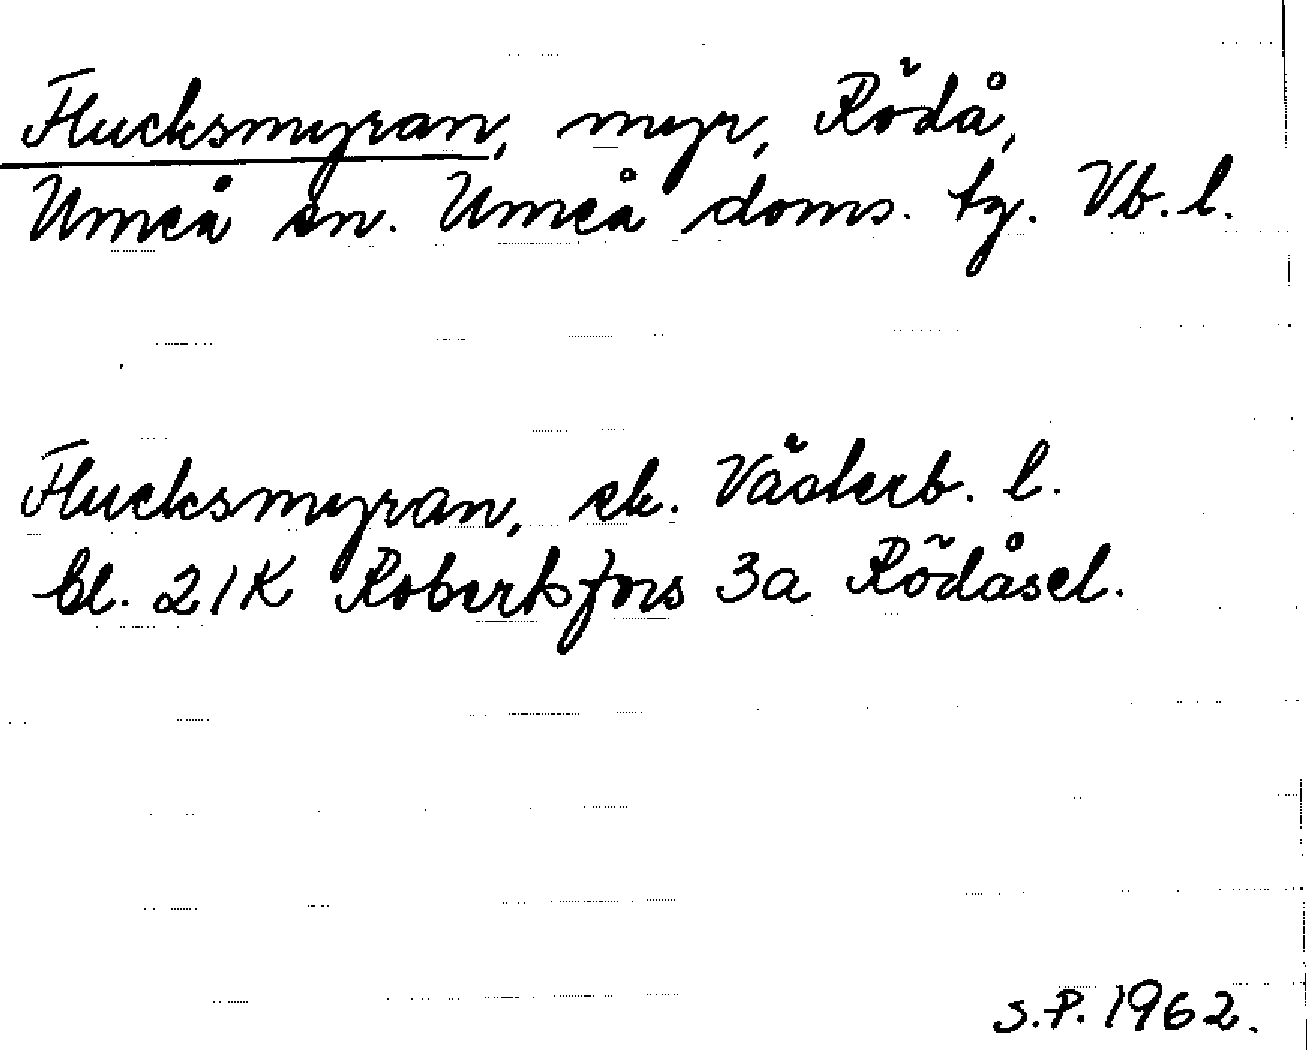 Flucksmyran, myr, Rödå,
Umeå sn. Umeå doms. tg. Vb. l.
Flucksmyran, ek. Västerb. l.
bl. 21K Robertsfors 3a Rödåsel.
S.P. 1962.